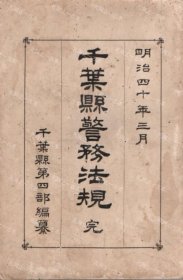 明治四十年三月
千葉縣警務法規 完
千葉縣第四部編纂